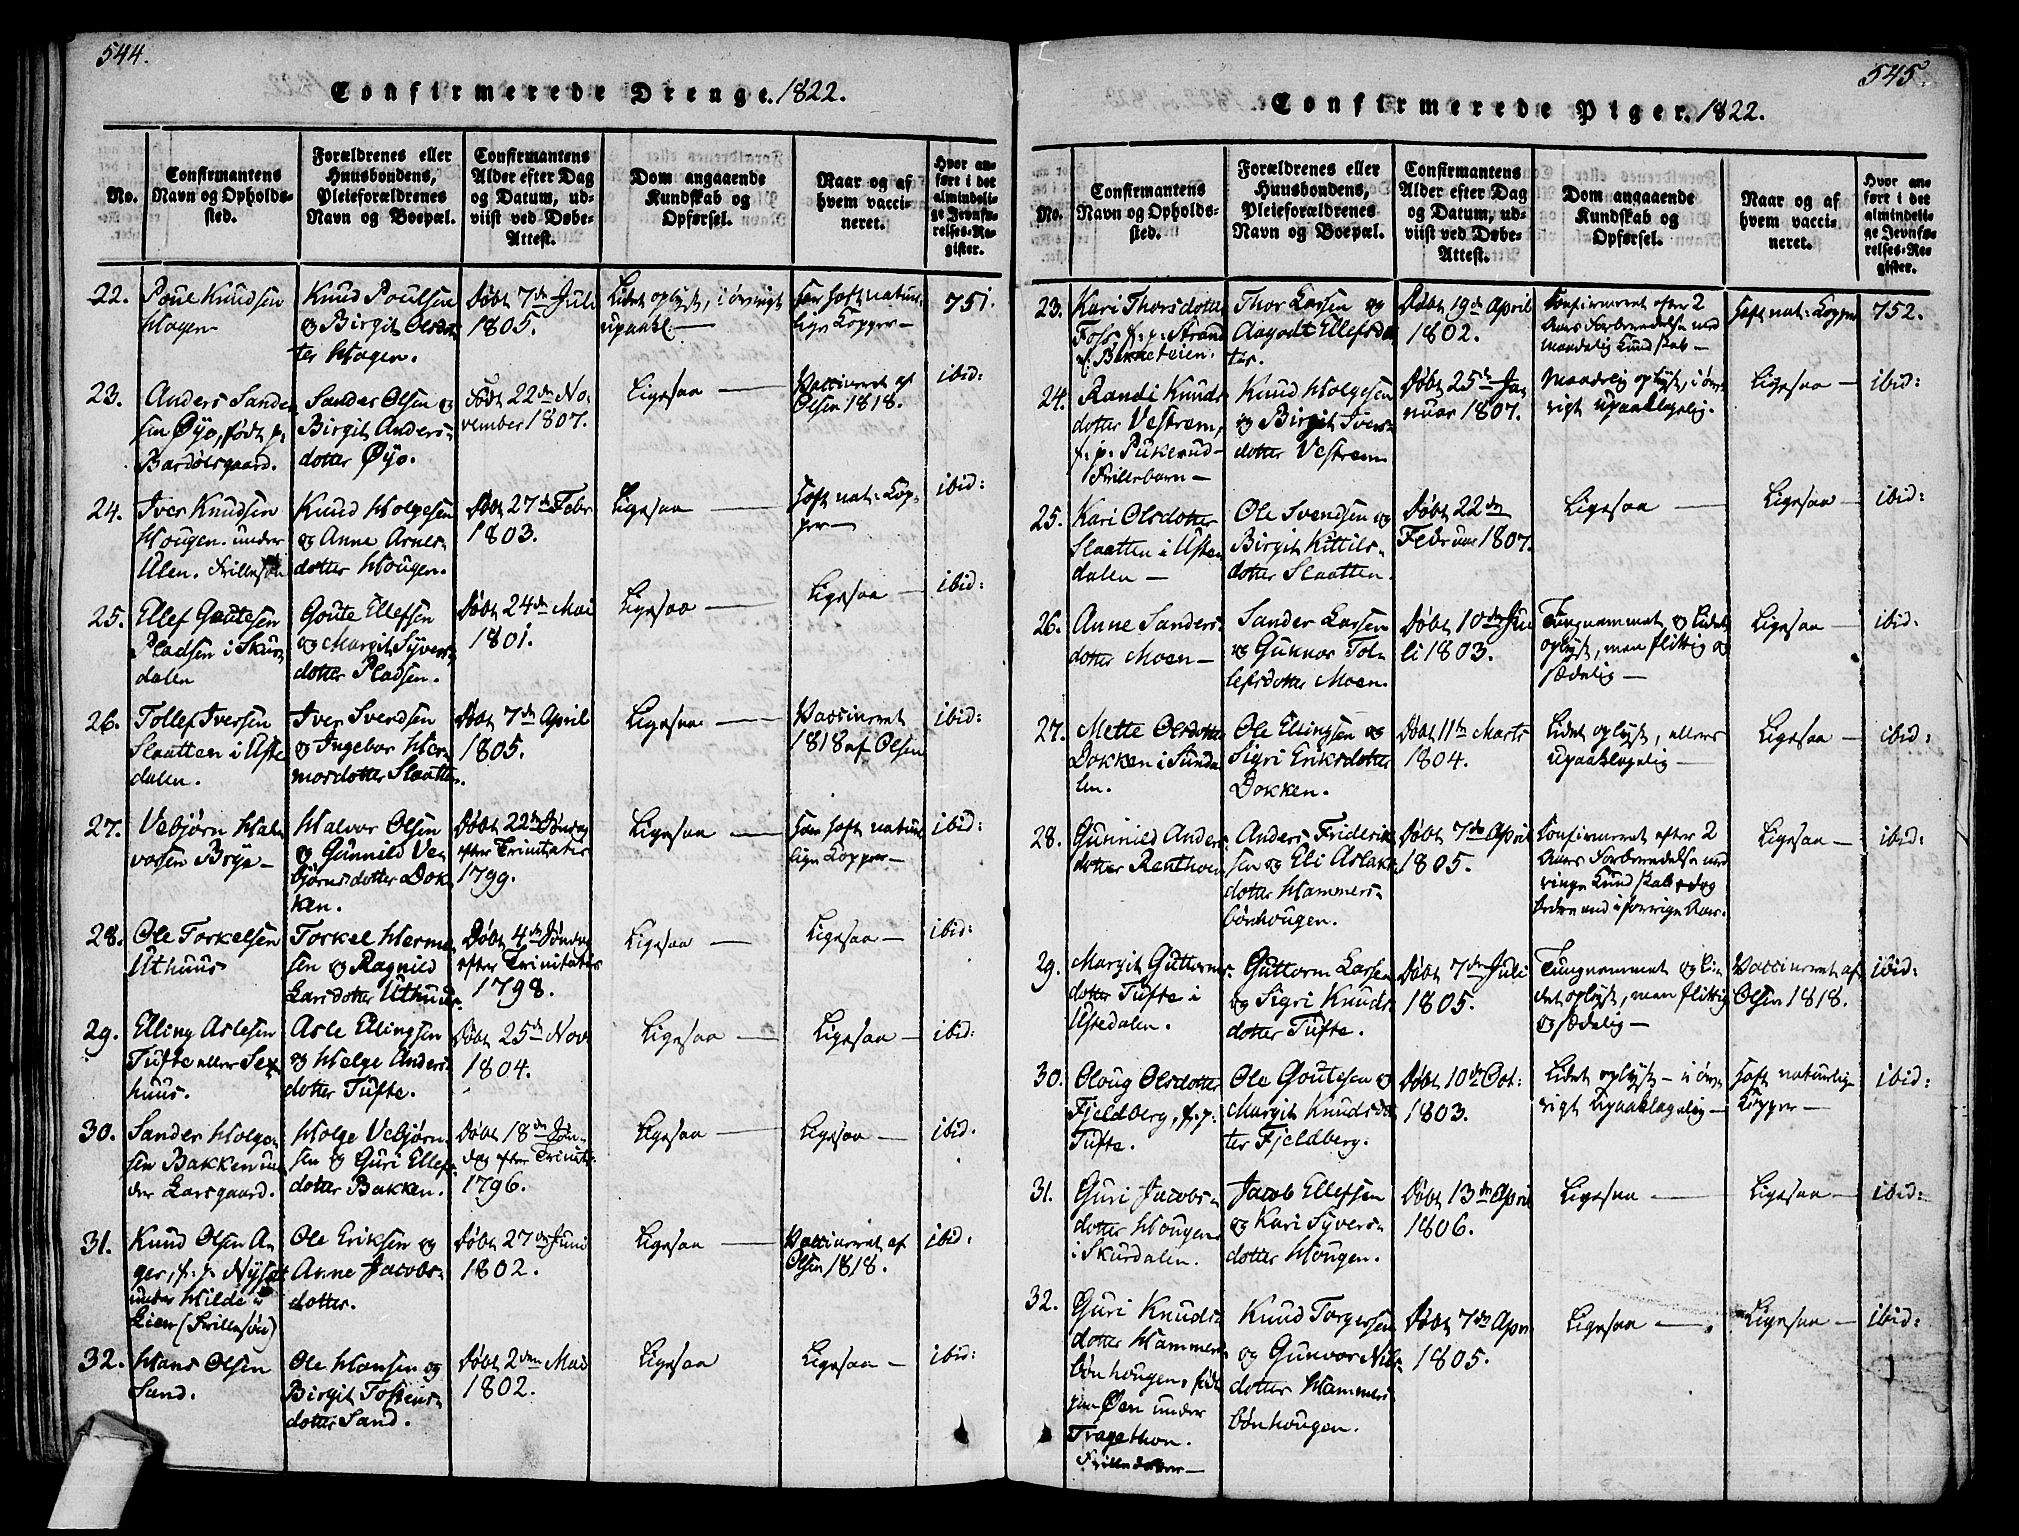 544.
Confirmerede Drenge. 1822.
No.
Confirmantens
Navn og Opholds-
sted.
Forældrenes eller
Huusbondens,
Pleieforældrenes
Navn og Boepæl.
Confirmantens
Alder efter Dag
og Datum, ud-
viist ved Døbe-
Attest.
Dom angaaende
Kundskab og
Opførsel.
Naar og af
hvem vacci-
neret.
Hvor an-
ført i det
almindeli-
ge Jevnfø-
relses-Re-
gister.
22.
Poul Knudsen
Hagen
Knud Poulsen
og Birgit Olsdot-
ter Hagen.
Døbt 7de Juli
1805.
Lidet oplyst, i øvrigt
upaakl. —
Har haft natur-
lige Kopper —
751.
23.
Anders Sander-
sen Øyo, født p:
Bardølsgaard.
Sander Olsen og
Birgit Anders-
dotter Øyo.
Født 22de No-
vember 1807.
Ligesaa —
Vaccineret af
Olsen 1818.
ibid:
24.
Iver Knudsen
Hougen under
Ulen. Frillesøn
Knud Holgesen
og Anne Arnes-
dotter Hougen.
Døbt 27de Febr
1803.
Ligesaa —
Haft nat: Kop-
per —
ibid:
25.
Ellef Goutesen
Pladsen i Skur-
dalen
Goute Ellefsen
og Margit Syvers-
dotter Pladsen.
Døbt 24de Mai
1801.
Ligesaa —
Ligesaa —
ibid:
26.
Tollef Iversen
Slaatten i Uste
dalen.
Iver Svendsen
og Ingebor Her-
mosdotter Slaatten.
Døbt 7de April
1805.
Ligesaa —
Vaccineret
1818 af Olsen
ibid:
27.
Vebjørn Hal-
vorsen Brye —
Halvor Olsen
og Gunnild Ve-
bjørnsdotter Dok-
ken.
Døbt 22de Søndag
efter Trinitatis
1799.
Ligesaa —
Har haft natur-
lige Kopper —
ibid:
28.
Ole Torkelsen
Uthuus
Torkel Herme-
sen og Ragnild
Larsdotter Uthuus.
Døbt 4de Søndag
efter Trinitatis
1798.
Ligesaa —
Ligesaa —
ibid:
29.
Elling Aslesen
Tufte eller Sex-
huus.
Asle Ellingsen
og Helge Anders-
dotter Tufte.
Døbt 25de Nov
1804.
Ligesaa —
Ligesaa —
ibid:
30.
Sander Holge-
sen Bakken un-
der Larsgaard.
Holge Vebjørn-
sen og Guri Ellefs-
dotter Bakken.
Døbt 18de Søn-
dag efter Trinit:
1796.
Ligesaa —
Ligesaa —
ibid.
31.
Knud Olsen A-
ger, f. p. Nyset
under Hilde i
Lien (Frillesøn)
Ole Eriksen og
Anne Jacobs-
dotter.
Døbt 27de Juni
1802.
Ligesaa —
Vaccineret af
Olsen 1818.
ibid.
32.
Hans Olsen
Sand.
Ole Hansen og
Birgit Tostens-
dotter Sand.
Døbt 2den Mai
1802.
Ligesaa
Ligesaa —
ibid:
545.
Confirmerede Piger. 1822.
No.
Confirmantens
Navn og Opholds-
sted.
Forældrenes eller
Huusbondens,
Pleieforældrenes
Navn og Boepæl.
Confirmantens
Alder efter Dag
og Datum, ud-
viist ved Døbe-
Attest.
Dom angaaende
Kundskab og
Opførsel.
Naar og af
hvem vacci-
neret.
Hvor an-
ført i det
almindeli-
ge Jevnfø-
relses-Re-
gister.
23.
Kari Thorsdotter
Foss. f. p. Strand
Thor Larsen og
Aagodt Ellefsdot-
ter.
Døbt 19de April
1802.
Confirmeret efter 2
Aars Forberedelse med
maadelig Kundskab —
Haft nat: Kopper
752.
24.
Randi Knuds-
dotter Vestrem,
f. p. Pukerud —
Frillebarn —
Knud Holgesen
og Birgit Ivers-
dotter Vestrem
Døbt 25de Ja-
nuar 1807.
Maadelig oplyst, i øv-
rigt upaaklagelig.
Ligesaa —
ibid:
25.
Kari Olsdotter
Slaatten i Uste-
dalen —
Ole Svendsen og
Birgit Kittils-
dotter Slaatten.
Døbt 22de
Februar 1807.
Ligesaa —
Ligesaa —
ibid:
26.
Anne Sanders-
dotter Moen —
Sander Larsen
og Gunnor Tol-
lefsdotter Moen.
Døbt 10de Ju-
li 1803.
Tungnemmet og lidet
oplyst, men flittig og
sædelig —
Ligesaa —
ibid:
27.
Mette Olsdotter
Dokken i Sunda-
len.
Ole Ellingsen og
Sigri Eriksdotter
Dokken.
Døbt 11te Marts
1804.
Lidet oplyst, ellers
upaaklagelig —
Ligesaa —
ibid:
28.
Gunnild Anders-
dotter Renthoen
Anders Friderik-
sen og Eli Aslaks-
dotter Hammers-
bønhougen.
Døbt 7de April
1805.
Confirmeret efter 2
Aars Forberedelse med
ringe Kundskab, dog
bedre end i forrige Aar.
Ligesaa —
ibid:
29.
Margit Guttorms-
dotter Tufte i
Ustedalen.
Guttorm Larsen
og Sigri Knuds-
dotter Tufte.
Døbt 7de Juli
1805.
Tungnemmet og li-
det oplyst, men flittig
og sædelig —
Vaccineret af
Olsen 1818.
ibid:
30.
Oloug Olsdotter
Fjeldberg, f. p.
Tufte.
Ole Goutesen og
Margit Knudsdot-
ter Fjeldberg.
Døbt 10de Oct:
1803.
Lidet oplyst — i øv-
rigt upaaklagelig —
Haft naturlige
Kopper —
ibid:
31.
Guri Jacobs-
dotter Hougen
i Skurdalen.
Jacob Ellefsen
og Kari Syvers-
dotter Hougen.
Døbt 13de April
1806.
Ligesaa —
Ligesaa —
ibid:
32.
Guri Knuds-
dotter Hammers-
bønhougen, født
paa Øen under
Tragethon.
Frilledotter —
Knud Torgersen
og Gunvor Niels-
dotter Hammers-
bønhougen.
Døbt 7de Apr:
1805.
Ligesaa —
Ligesaa —
ibid: